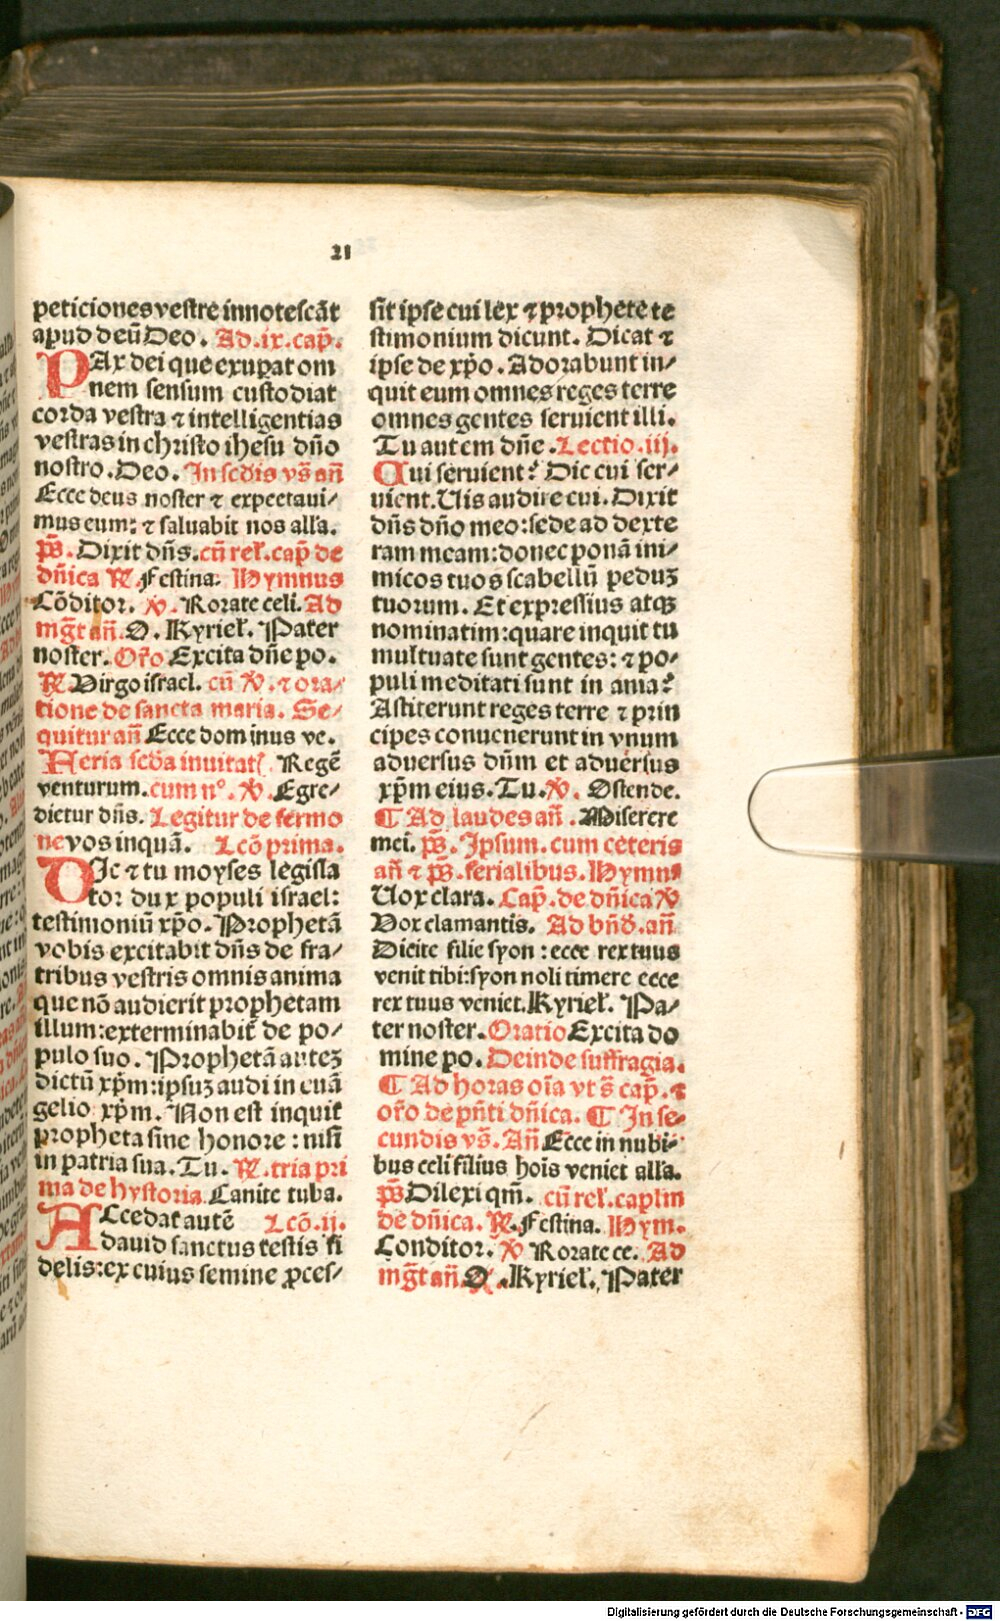 21
peticiones vestre innotescãt
apud deũ Deo. Ad.ix.cap̃.
PAx dei que exupat om
nem sensum custodiat
corda vestra ⁊ intelligentias
vestras in christo ihesu dño
nostro. Deo. In scdis vs̃ añ
Ecce deus noster ⁊ expectaui/
mus eum: ⁊ saluabit nos alľa.
ps̃. Dixit dñs. cũ reľ. cap̃ de
dñica ℟. Festina. Hymnus
Cõditor. ℣. Rorate celi. Ad
mg̃t añ. O. Kyrieľ. Pater
noster. Or̃o Excita dñe po.
℟. Virgo israel. cũ ℣. ⁊ ora/
tione de sancta maria. Se/
quitur añ Ecce dominus ve.
Feria scďa inuitatꝭ Regẽ
venturum. cum nº. ℣. Egre/
dietur dñs. Legitur de sermo
ne vos inquã. Lcõ prima.
DIc ⁊ tu moyses legisla
tor dux populi israel:
testimoniũ xp̃o. Prophetã
vobis excitabit dñs de fra/
tribus vestris omnis anima
que nõ audierit prophetam
illum: exterminabit̃ de po/
pulo suo. Prophetã auteꝫ
dictũ xp̃m: ipsuꝫ audi in euã
gelio xp̃m. Non est inquit
propheta sine honore: nisi
in patria sua. Tu. ℟. tria pri
ma de hystoria Canite tuba.
ACcedat autẽ Lcõ.ij.
dauid sanctus testis fi
delis: ex cuius semine ꝓces/
sit ipse cui lex ⁊ prophete te
stimonium dicunt. Dicat ⁊
ipse de xp̃o. Adorabunt in/
quit eum omnes reges terre
omnes gentes seruient illi.
Tu autem dñe. Lectio.iij.
Cui seruient? Dic cui ser/
uient. Uis audire cui. Dixit
dñs dño meo: sede ad dexte
ram meam: donec ponã ini/
micos tuos scabellũ peduꝫ
tuorum. Et expressius atqꝫ
nominatim: quare inquit tu
multuate sunt gentes: ⁊ po/
puli meditati sunt in ania?
Astiterunt reges terre ⁊ prin
cipes conuenerunt in vnum
aduersus dñm et aduersus
xp̃m eius. Tu. ℣. Ostende.
¶ Ad laudes añ. Miserere
mei. ps̃. Ipsum. cum ceteris
añ ⁊ ps̃. ferialibus. Hymnꝰ
Uox clara. Cap̃. de dñica ℣
Vox clamantis. Ad bñď. añ
Dicite filie syon: ecce rex tuus
venit tibi: syon noli timere ecce
rex tuus veniet. Kyrieľ. Pa/
ter noster. Oratio Excita do
mine po. Deinde suffragia.
¶ Ad horas oĩa vt s̃ cap̃. ⁊
or̃o de pñti dñica. ¶ In se/
cundis vs̃. Añ Ecce in nubi/
bus celi filius hois veniet alľa.
ps̃ Dilexi qm̃. cũ reľ. caplm
de dñica. ℟. Festina. Hym.
Conditor. ℣ Rorate ce. Ad
mg̃t añ. O. Kyrieľ. Pater
Digitalisierung gefördert durch die Deutsche Forschungsgemeinschaft - DFG